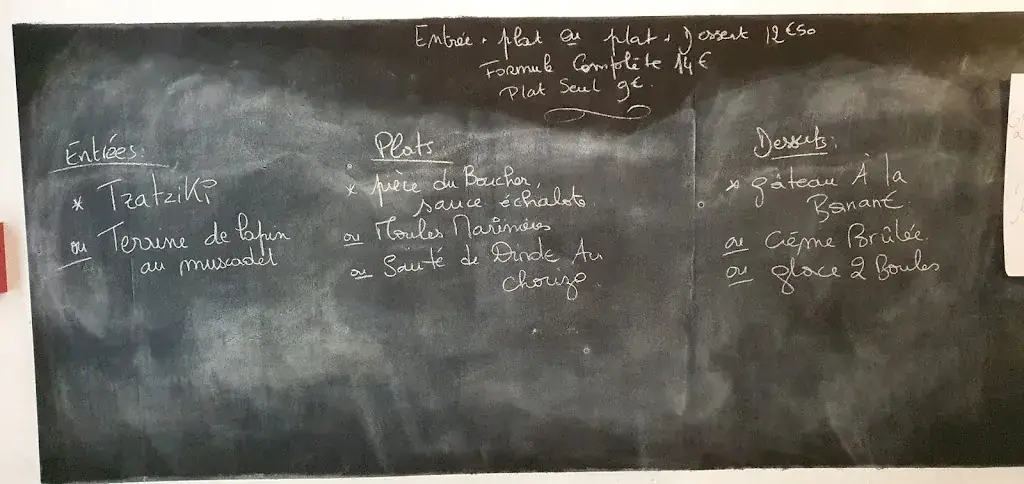 Entrée + plat ou plat + Dessert 12€50
Formule Complète 14€
Plat Seul 9€
Entrées:
* Tzatziki
ou Terrine de lapin
au muscadet
Plats
* pièce du Boucher,
sauce échalote
ou Moules Marinières
ou Sauté de Dinde Au
chorizo
Desserts:
* gâteau À la
Banane
ou Crème Brûlée
ou glace 2 Boules